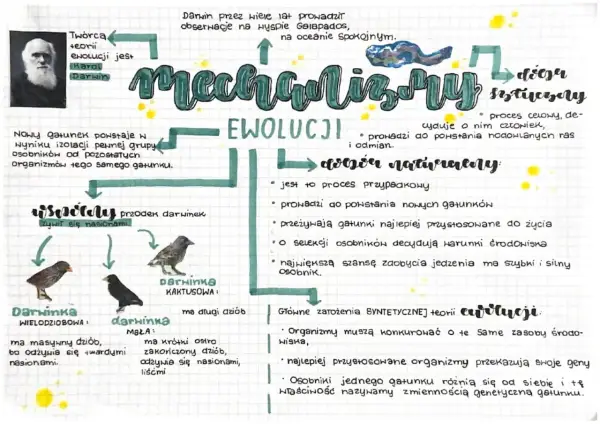 Darwin przez wiele lat prowadził
obserwacje na wyspie Galapagos,
na oceanie spokojnym.
Twórcą
teorii
ewolucji jest
Karol
Darwin
mechanizmy
EWOLUCJI
dobór
sztuczny
* proces celowy, de-
cyduje o nim człowiek,
* prowadzi do powstania hodowlanych ras
i odmian.
Nowy gatunek powstaje w
wyniku izolacji pewnej grupy
osobników od pozostałych
organizmów tego samego gatunku.
dobór naturalny:
* jest to proces przypadkowy
* prowadzi do powstania nowych gatunków
* przeżywają gatunki najlepiej przystosowane do życia
* o selekcji osobników decydują warunki środowiska
* największą szansę zdobycia jedzenia ma szybki i silny
osobnik.
wspólny przodek darwinek
żywił się nasionami
Darwinka
WIELODZIOBOWA:
ma masywny dziób,
bo odżywia się twardymi
nasionami.
darwinka
MAŁA:
ma krótki ostro
zakończony dziób,
odżywia się nasionami,
liśćmi
Darwinka
KAKTUSOWA:
ma długi dziób
Główne założenia SYNTETYCZNEJ teorii ewolucji:
* Organizmy muszą konkurować o te same zasoby środo-
wiska,
* najlepiej przystosowane organizmy przekazują swoje geny
* Osobniki jednego gatunku różnią się od siebie i tę
właściwość nazywamy zmiennością genetyczną gatunku.